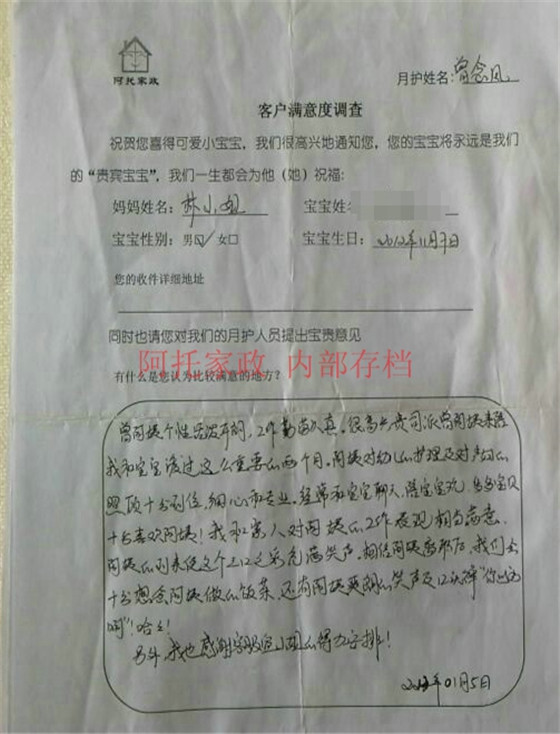 阿托家政
月护姓名:曾念凤
客户满意度调查
祝贺您喜得可爱小宝宝,我们很高兴地通知您,您的宝宝将永远是我们
的“贵宾宝宝”,我们一生都会为他(她)祝福:
妈妈姓名:林小姐 宝宝姓名
宝宝性别:男☑ 女□ 宝宝生日:2012年11月7日
您的收件详细地址
同时也请您对我们的月护人员提出宝贵意见
阿托家政 内部存档
有什么是您认为比较满意的地方?
曾阿姨个性活泼开朗,工作勤劳认真。很高兴贵司派曾阿姨来陪
我和宝宝渡过这么重要的两个月。阿姨对幼儿的护理及对产妇的
照顾十分到位,细心和专业。经常和宝宝聊天,陪宝宝玩,宝贝
十分喜欢阿姨!我和家人对阿姨的工作表现相当满意。
阿姨的到来使这个三口之家充满笑声。相信阿姨离职后,我们会
十分想念阿姨做的饭菜,还有阿姨爽朗的笑声及口头禅“你
啊”!哈哈!
另外,我也感谢 小姐的得力安排!
01月5日